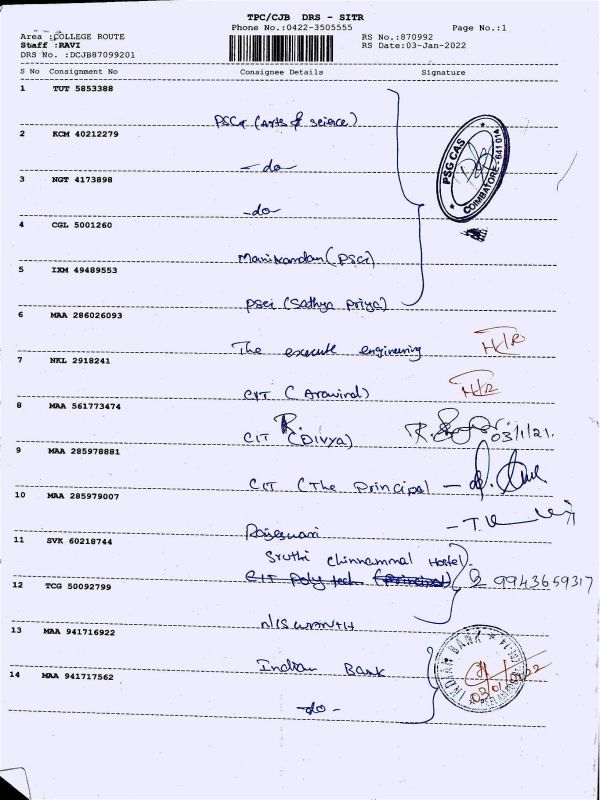 TPC/CJB DRS - SITR
Phone No.:0422-3505555 Page No.:1
Area :COLLEGE ROUTE RS No.:870992
Staff :RAVI RS Date:03-Jan-2022
DRS No. :DCJB87099201
S No Consignment No Consignee Details Signature
1 TUT 5853388
PSG (Arts & science)
2 KCM 40212279
- do -
3 NGT 4173898
- do
4 CGL 5001260
Manikandan (PSG)
5 IXM 49489553
(Sathya Priya)
6 MAA 286026093
The execute engineering
7 NKL 2918241
CIT (Aravind)
8 MAA 561773474
CIT (DIVYA) 03/1/21.
9 MAA 285978881
CIT (The Principal
10 MAA 285979007
Rajeswari
11 SVK 60218744
Sruthi Chinnammal Hostel.
CIT Poly tech (Principal) 9943659317
12 TCG 50092799
13 MAA 941716922
Indian Bank
14 MAA 941717562
- do -
PSG CAS
COIMBATORE - 641 014
INDIAN BANK
03/01/2022